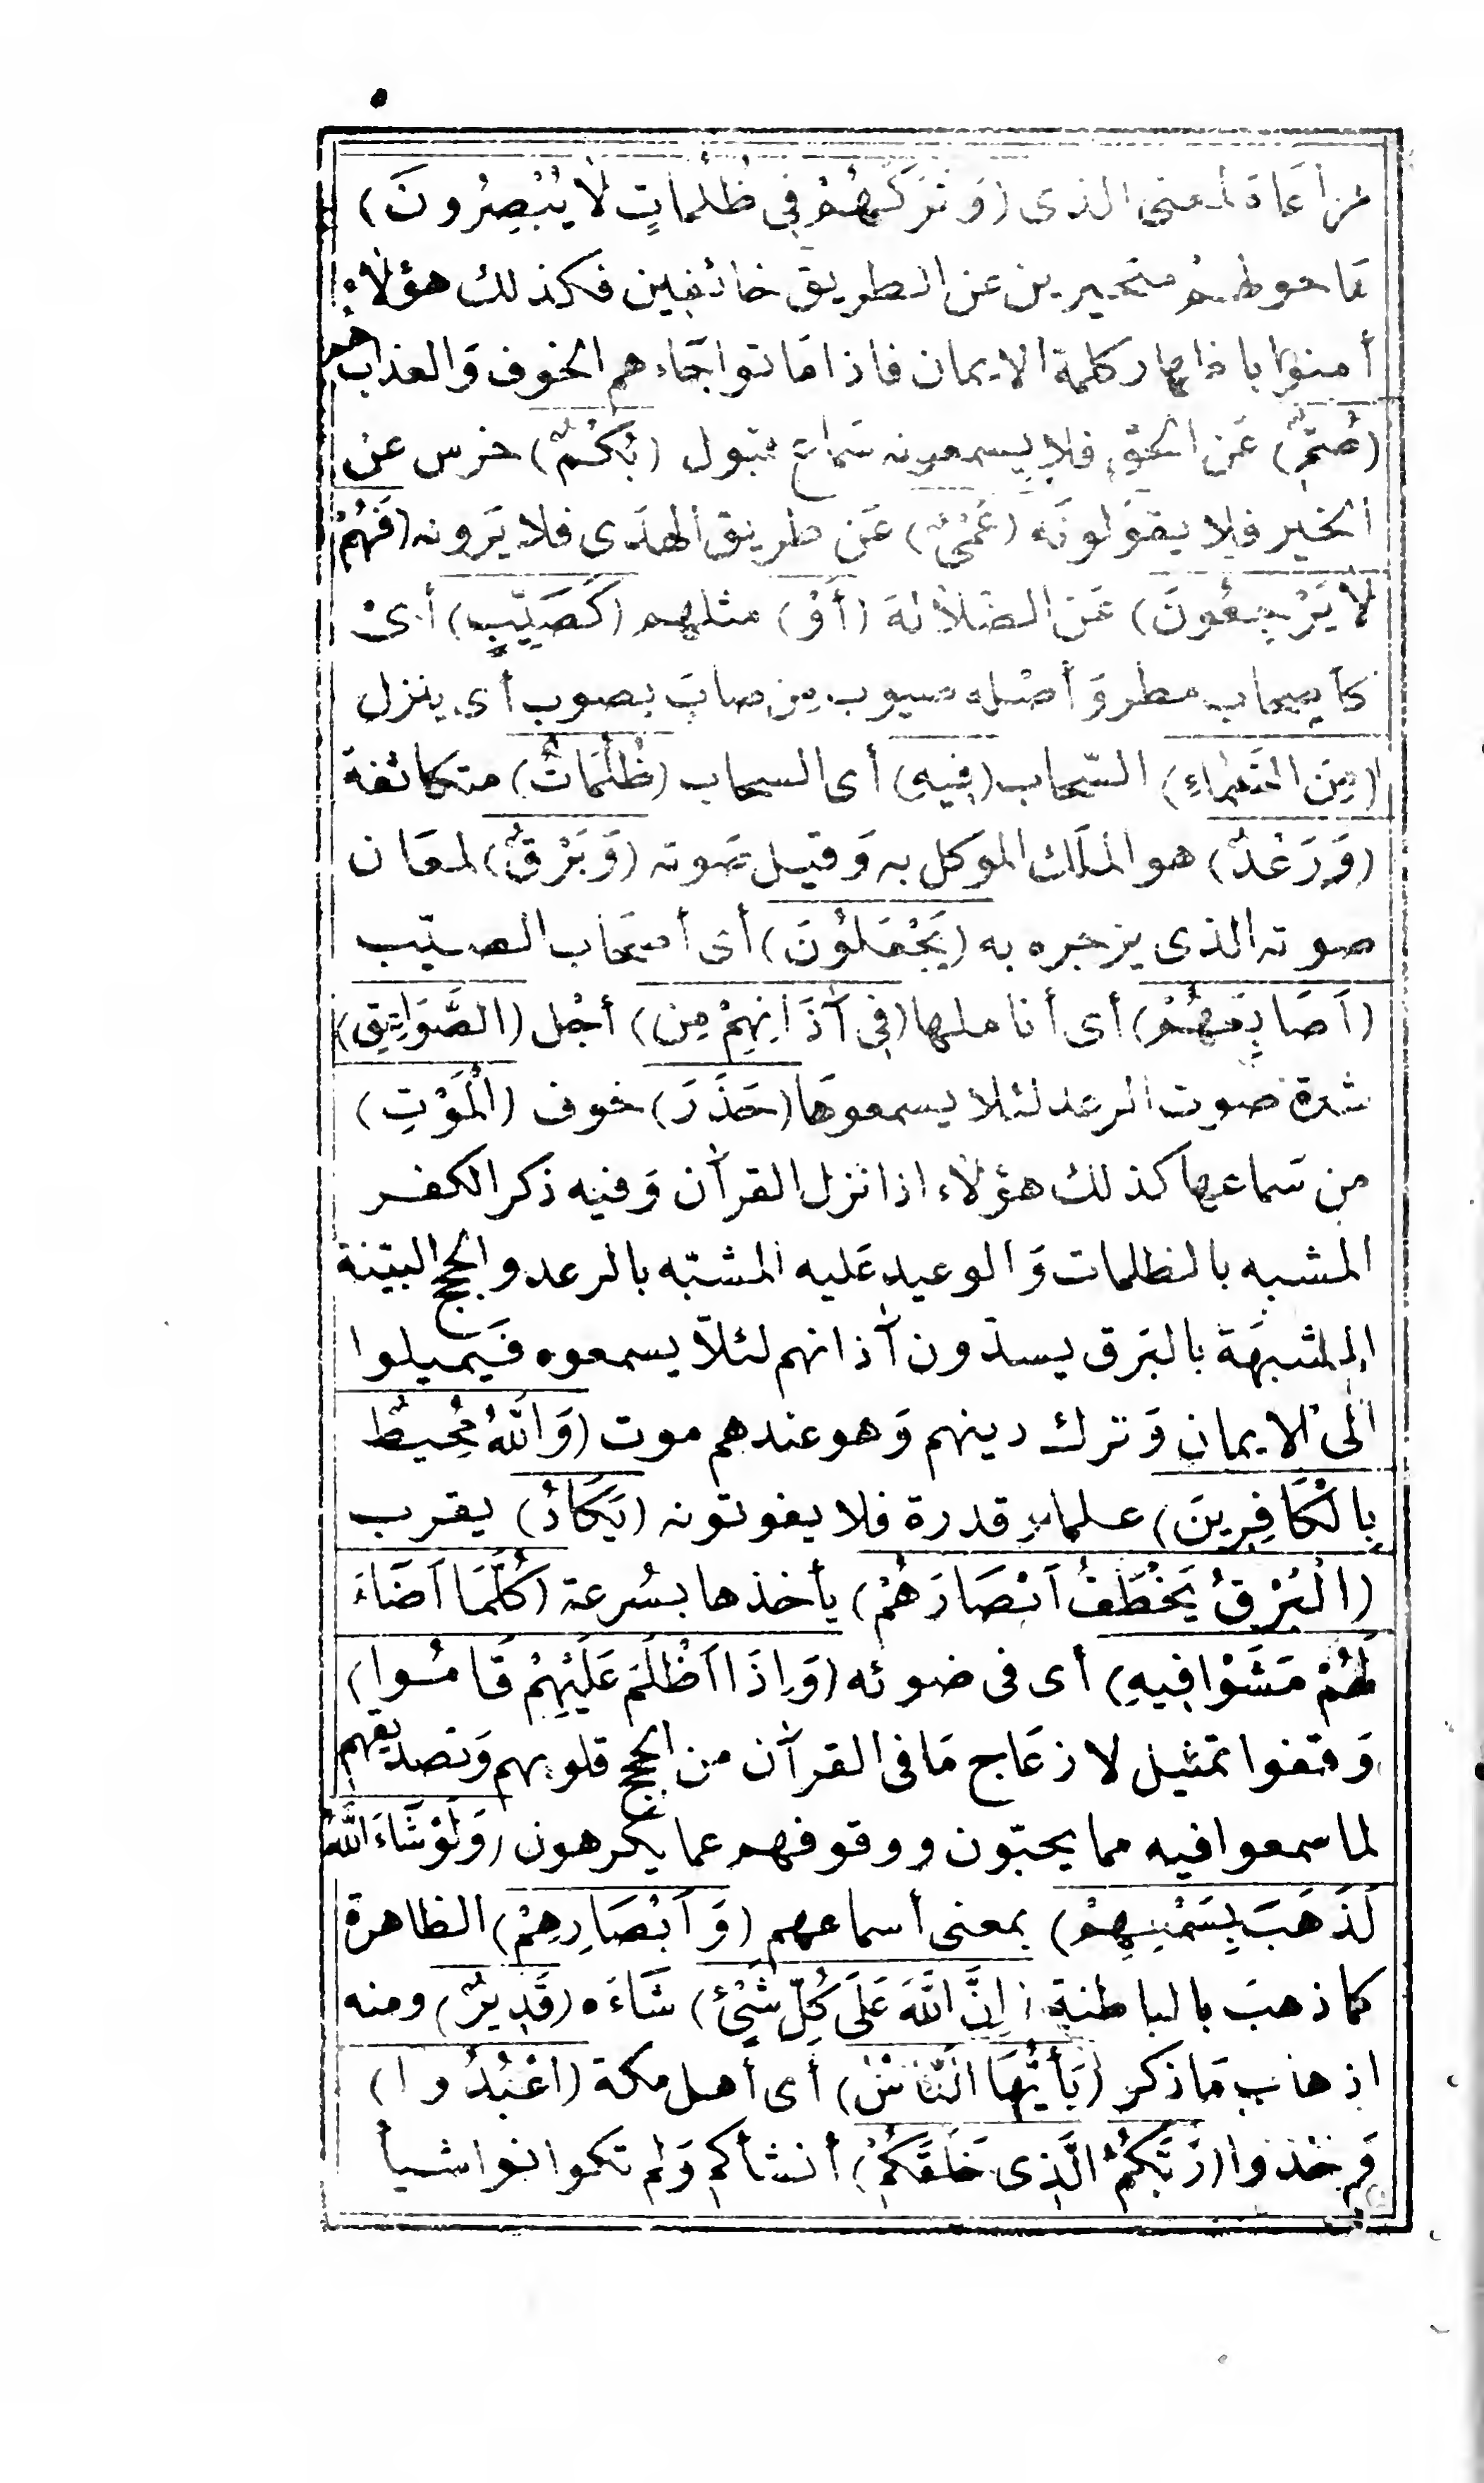 مراعاة لمعنى الذى (وَتَرَكَهُمْ فِى ظُلُمَاتٍ لَا يُبْصِرُونَ)
ما حولهم متحيرين عن الطريق خائفين فكذلك هؤلاء
أمنوا باظهار كلمة الايمان فاذا ماتوا جاءهم الخوف والعذاب هم
(صُمٌّ) عن الحق فلا يسمعونه سماع قبول (بُكْمٌ) خرس عن
الخير فلا يقولونه (عُمْىٌ) عن طريق الهدى فلا يرونه (فَهُمْ
لَا يَرْجِعُونَ) عن الضلالة (أَوْ) مثلهم (كَصَيِّبٍ) أى
كأصحاب مطر وأصله صيوب من صاب يصوب أى ينزل
(مِنَ السَّمَاءِ) السّحاب (فِيهِ) أى السحاب (ظُلُمَاتٌ) متكاثفة
(وَرَعْدٌ) هو الملَك الموكل به وقيل صوته (وَبَرْقٌ) لمعان
صوته الذى يزجره به (يَجْعَلُونَ) أى أصحاب الصيّب
(اَصَابِعَهُمْ) أى أناملها (فِى آذَانِهِمْ مِنَ) أجل (الصَّوَاعِقِ)
شدة صوت الرعد لئلا يسمعوها (حَذَرَ) خوف (الْمَوْتِ)
من سماعها كذلك هؤلاء اذا نزل القرآن وفيه ذكر الكفر
المشبه بالظلمات والوعيد عليه المشبّه بالرعد والحجج البيّنة
المشبهة بالبرق يسدّون آذانهم لئلّا يسمعوه فيميلوا
الى الايمان وترك دينهم وهو عندهم موت (وَاللَّهُ مُحِيطٌ
بِالْكَافِرِينَ) علما قدرة فلا يفوتونه (يَكَادُ) يقرب
(الْبَرْقُ يَخْطَفُ اَبْصَارَهُمْ) يأخذها بسُرعة (كُلَّمَا اَضَاءَ
لَهُمْ مَشَوْا فِيهِ) أى فى ضوئه (وَاِذَا اَظْلَمَ عَلَيْهِمْ قَامُوا)
وقفوا تمثيل لازعاج ما فى القرآن من الحجج قلوبهم وتصديقهم
لما سمعوا فيه مما يحبّون ووقوفهم عما يكرهون (وَلَوْ شَاءَ اللَّهُ
لَذَهَبَ بِسَمْعِهِمْ) بمعنى أسماعهم (وَاَبْصَارِهِمْ) الظاهرة
كما ذهب بالباطنة (اِنَّ اللَّهَ عَلَى كُلِّ شَىْءٍ) شاءه (قَدِيرٌ) ومنه
اذهاب ما ذكر (يَأَيُّهَا النَّاسُ) أى أهل مكة (اعْبُدُوا)
وحّدوا (رَبَّكُمُ الَّذِى خَلَقَكُمْ) أنشأكم ولم تكوانوا شيأ